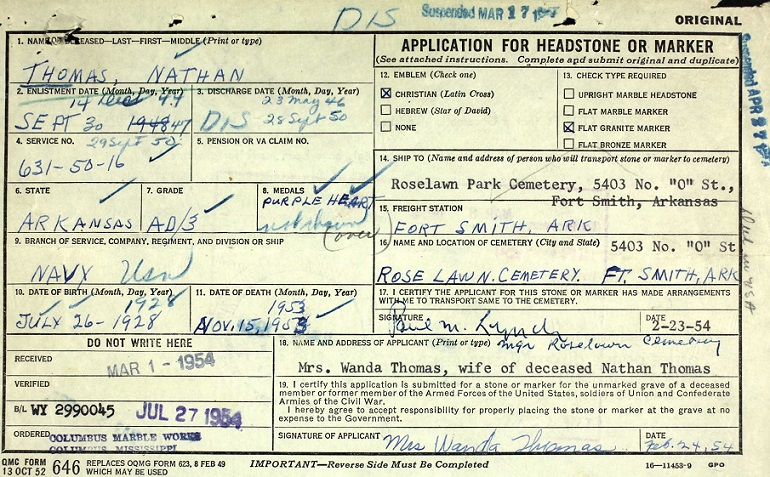 DIS Suspended MAR 27 1954
ORIGINAL
1. NAME OF DECEASED—LAST—FIRST—MIDDLE (Print or type)
THOMAS, NATHAN
2. ENLISTMENT DATE (Month, Day, Year)
14 Dec 44
SEPT 30 1948 47
3. DISCHARGE DATE (Month, Day, Year)
23 May 46
DIS 28 Sept 50
4. SERVICE NO.
29 Sept 50
631-50-16
5. PENSION OR VA CLAIM NO.
6. STATE
ARKANSAS
7. GRADE
AD/3
8. MEDALS
PURPLE HEART
not shown
(over)
9. BRANCH OF SERVICE, COMPANY, REGIMENT, AND DIVISION OR SHIP
NAVY Usn
10. DATE OF BIRTH (Month, Day, Year)
1928
JULY 26-1928
11. DATE OF DEATH (Month, Day, Year)
1953
NOV. 15, 1953
DO NOT WRITE HERE
RECEIVED
MAR 1 - 1954
VERIFIED
B/L WY 2990045 JUL 27 1954
ORDERED COLUMBUS MARBLE WORKS
COLUMBUS, MISSISSIPPI
APPLICATION FOR HEADSTONE OR MARKER
(See attached instructions. Complete and submit original and duplicate)
12. EMBLEM (Check one)
CHRISTIAN (Latin Cross)
HEBREW (Star of David)
NONE
13. CHECK TYPE REQUIRED
UPRIGHT MARBLE HEADSTONE
FLAT MARBLE MARKER
FLAT GRANITE MARKER
FLAT BRONZE MARKER
14. SHIP TO (Name and address of person who will transport stone or marker to cemetery)
Roselawn Park Cemetery, 5403 No. "O" St.,
Fort Smith, Arkansas
15. FREIGHT STATION
FORT SMITH, ARK
16. NAME AND LOCATION OF CEMETERY (City and State) 5403 No. "O" St
ROSE LAWN. CEMETERY, FT. SMITH, ARK
17. I CERTIFY THE APPLICANT FOR THIS STONE OR MARKER HAS MADE ARRANGEMENTS
WITH ME TO TRANSPORT SAME TO THE CEMETERY.
SIGNATURE Paul M. Lynch DATE
2-23-54
18. NAME AND ADDRESS OF APPLICANT (Print or type) mgr Roselawn Cemetery
Mrs. Wanda Thomas, wife of deceased Nathan Thomas
19. I certify this application is submitted for a stone or marker for the unmarked grave of a deceased
member or former member of the Armed Forces of the United States, soldiers of Union and Confederate
Armies of the Civil War.
I hereby agree to accept responsibility for properly placing the stone or marker at the grave at no
expense to the Government.
SIGNATURE OF APPLICANT Mrs Wanda Thomas DATE Feb. 24, 54
Suspended APR 27
Died in USA
QMC FORM 646 REPLACES OQMG FORM 623, 8 FEB 49
13 OCT 52 WHICH MAY BE USED
IMPORTANT—Reverse Side Must Be Completed
16—11453-9 GPO